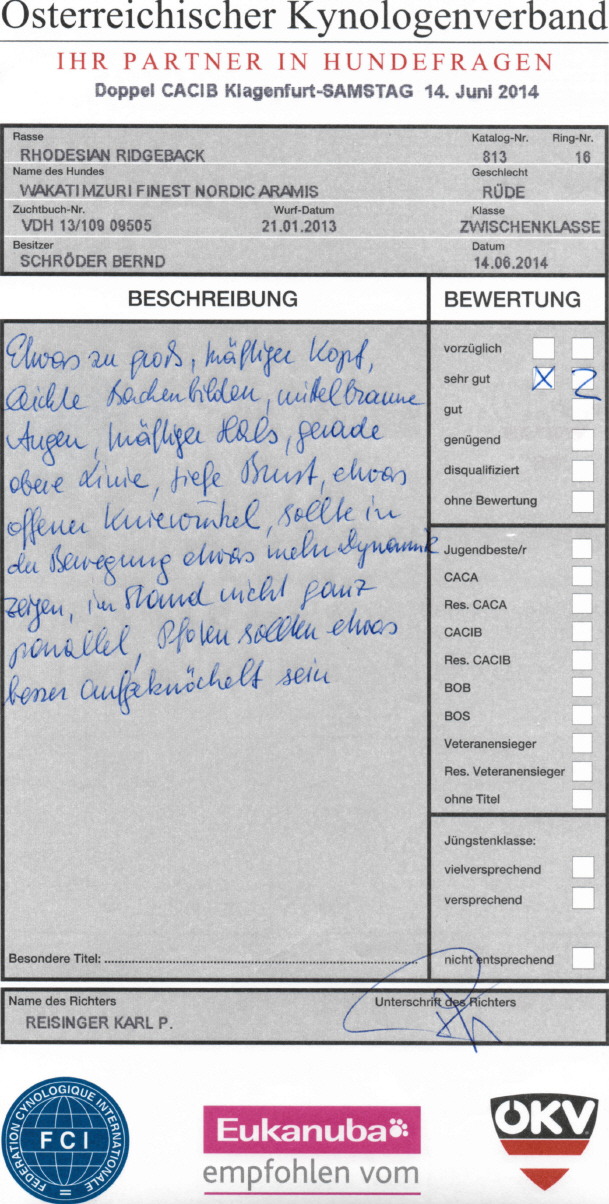 Österreichischer Kynologenverband
IHR PARTNER IN HUNDEFRAGEN
Doppel CACIB Klagenfurt-SAMSTAG 14. Juni 2014
Rasse Katalog-Nr. Ring-Nr.
RHODESIAN RIDGEBACK 813 16
Name des Hundes Geschlecht
WAKATI MZURI FINEST NORDIC ARAMIS RÜDE
Zuchtbuch-Nr. Wurf-Datum Klasse
VDH 13/109 09505 21.01.2013 ZWISCHENKLASSE
Besitzer Datum
SCHRÖDER BERND 14.06.2014
BESCHREIBUNG
Etwas zu groß, kräftiger Kopf,
leichte Backenbilden, mittelbraune
Augen, kräftiger Hals, gerade
obere Linie, tiefe Brust, etwas
offener Kniewinkel, sollte in
der Bewegung etwas mehr Dynamik
zeigen, im Stand nicht ganz
parallel, Pfoten sollten etwas
besser aufgeknöchelt sein
Besondere Titel:
BEWERTUNG
vorzüglich
sehr gut X 2
gut
genügend
disqualifiziert
ohne Bewertung
Jugendbeste/r
CACA
Res. CACA
CACIB
Res. CACIB
BOB
BOS
Veteranensieger
Res. Veteranensieger
ohne Titel
Jüngstenklasse:
vielversprechend
versprechend
nicht entsprechend
Name des Richters Unterschrift des Richters
REISINGER KARL P.
FEDERATION CYNOLOGIQUE INTERNATIONALE
FCI
Eukanuba
empfohlen vom
ÖKV